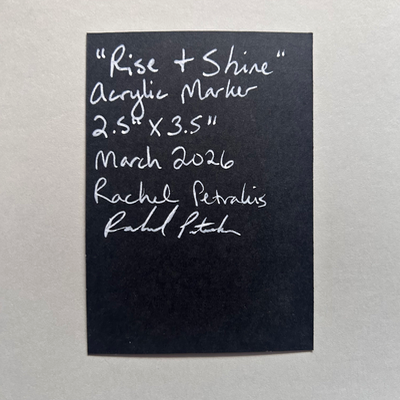 "Rise + Shine"
Acrylic Marker
2.5" x 3.5"
March 2026
Rachel Petrakis
Rachel Petrakis